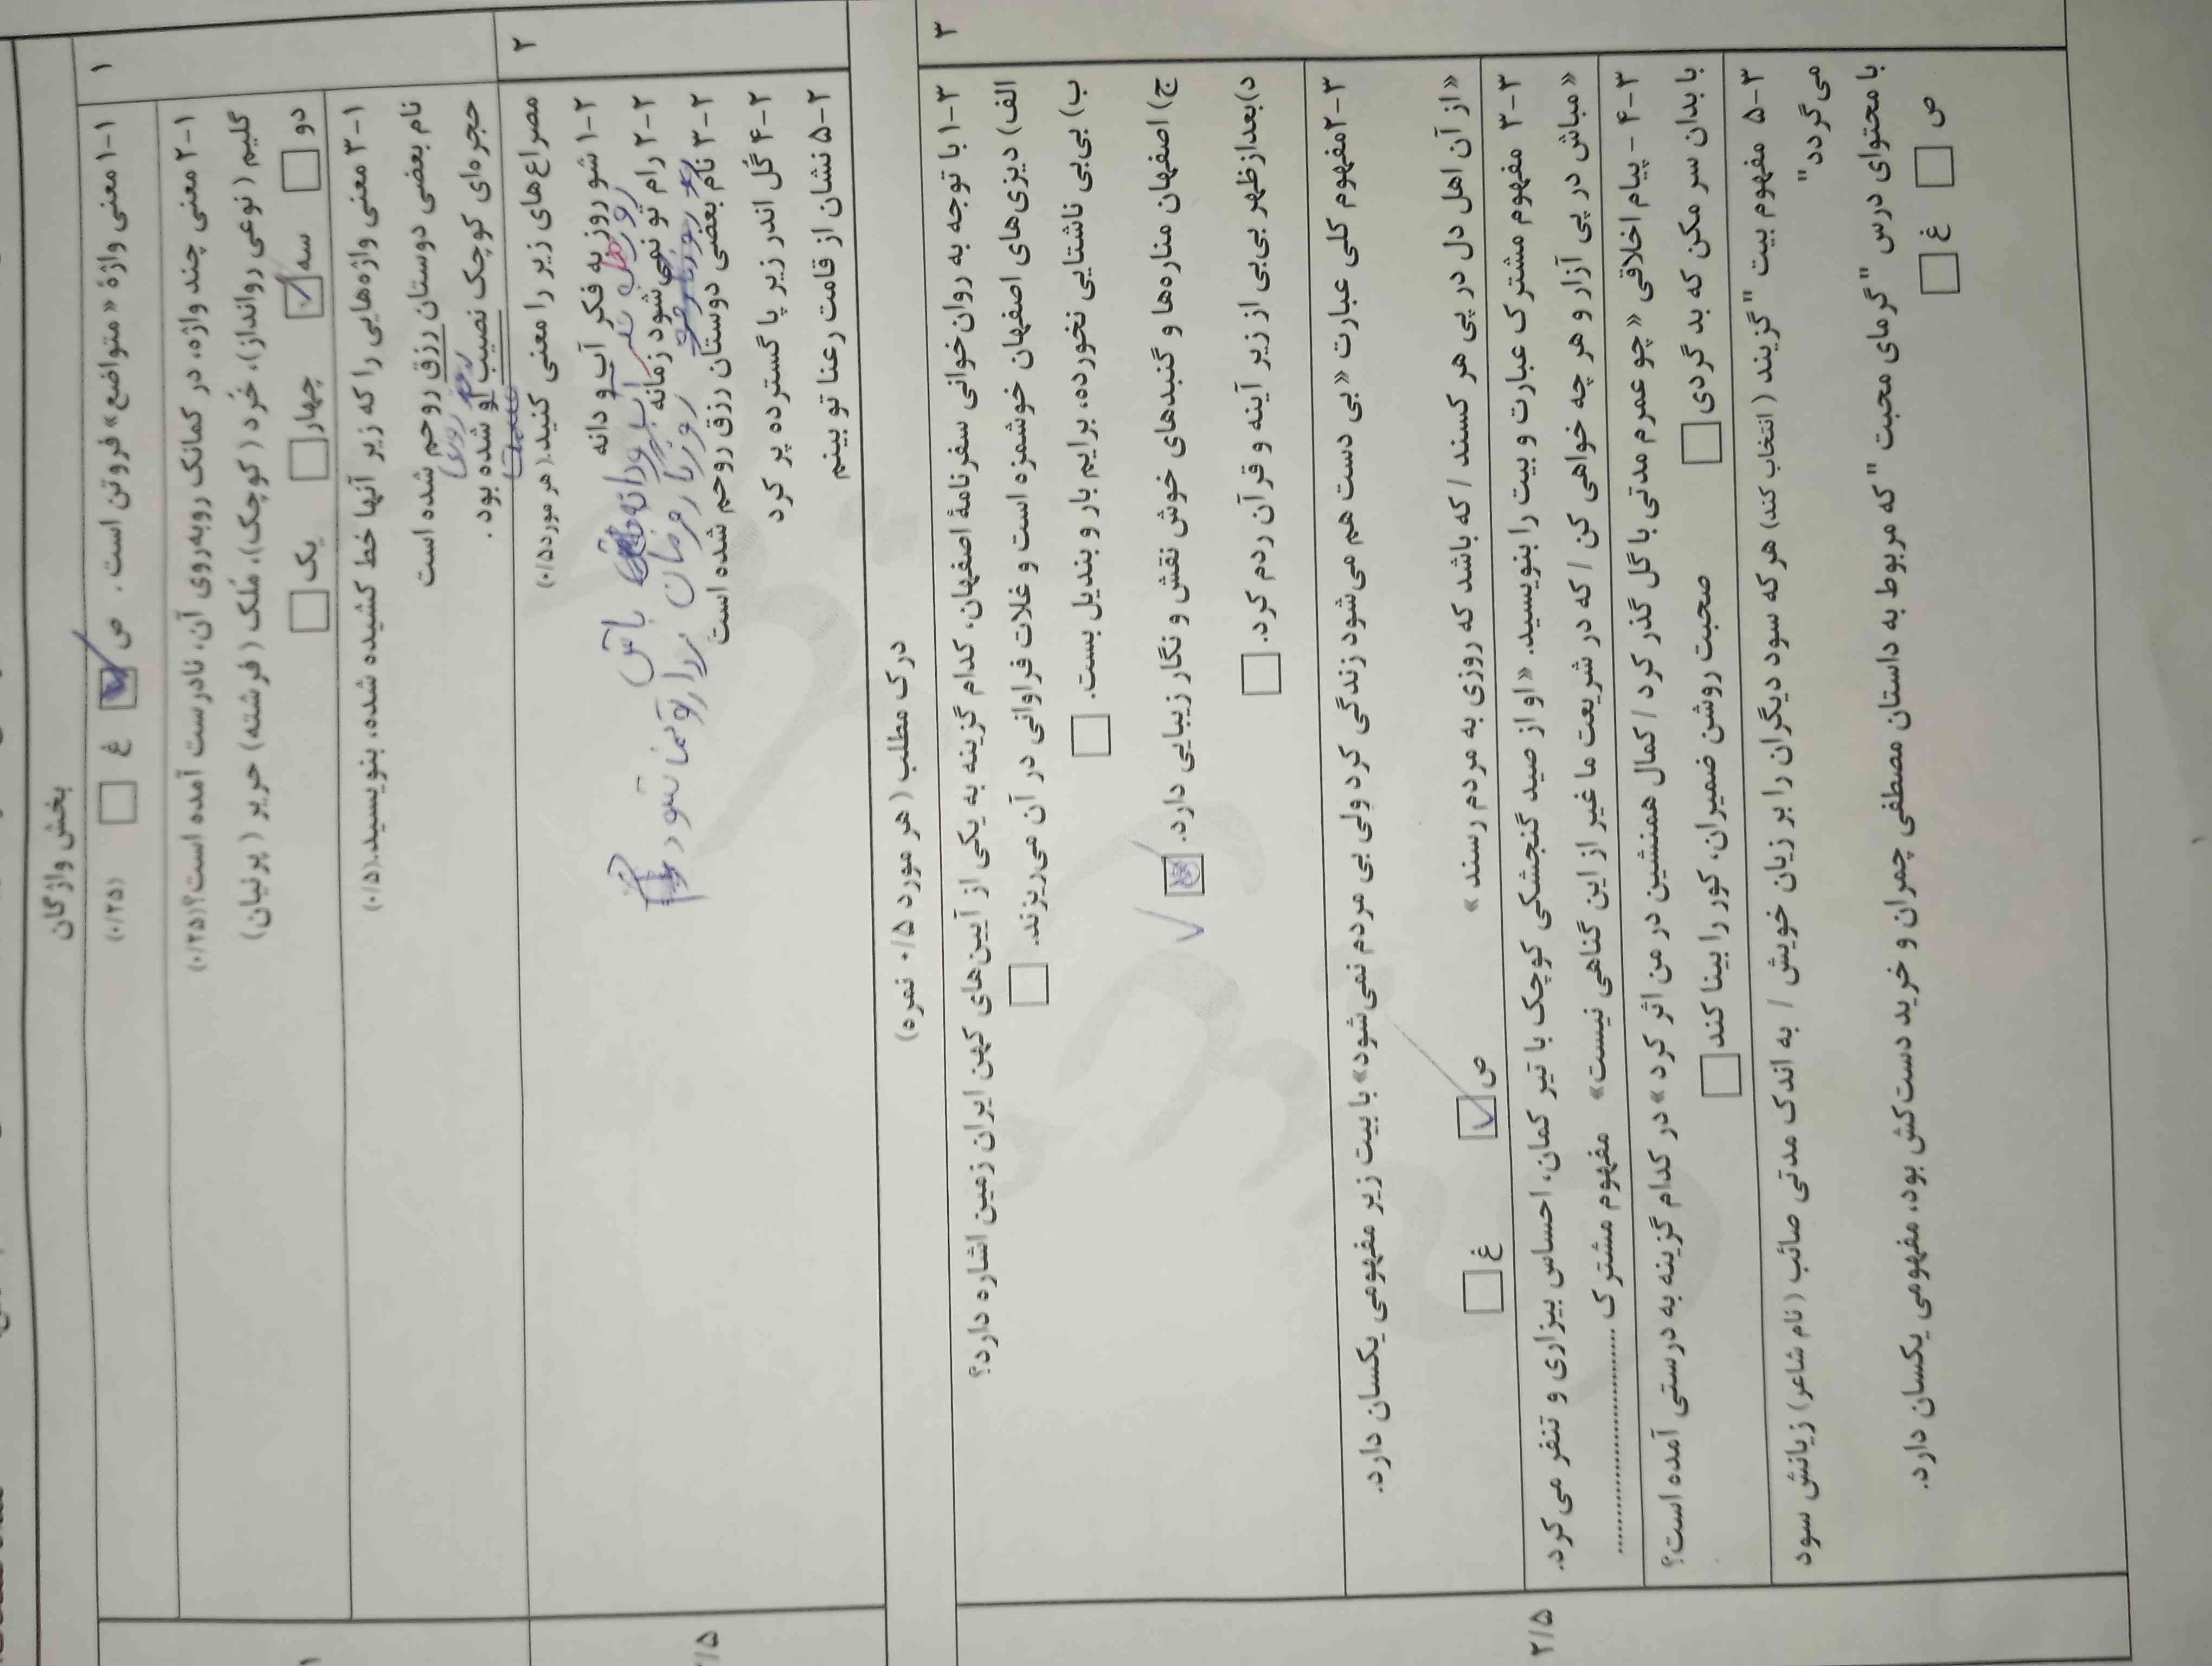 بخش واژگان
۱
۱-۱ معنی واژهٔ « متواضع» فروتن است . ص غ (۰/۲۵)
۲-۱ معنی چند واژه، در کمانک روبه‌روی آن، نادرست آمده است؟(۰/۲۵)
گلیم ( نوعی روانداز)، خُرد ( کوچک)، مُلک ( فرشته) حریر ( پرنیان)
دو سه چهار یک
۳-۱ معنی واژه‌هایی را که زیر آنها خط کشیده شده، بنویسید.(۰/۵)
نام بعضی دوستان رزق روحم شده است
حجره‌ای کوچک نصیب او شده بود .
روزی
۲
مصراع های زیر را معنی کنید.( هر مورد ۰/۵)
۱-۲ شو روز به فکر آب و دانه
۲-۲ رام تو نمی شود زمانه
۳-۲ نام بعضی دوستان رزق روحم شده است
۴-۲ گل اندر زیر پا گسترده پر کرد
۵-۲ نشان از قامت رعنا تو بینم
درک مطلب ( هر مورد ۰/۵ نمره)
۳
۱-۳ با توجه به روان خوانی سفرنامهٔ اصفهان، کدام گزینه به یکی از آیین های کهن ایران زمین اشاره دارد؟
الف) دیزی های اصفهان خوشمزه است و غلات فراوانی در آن می‌ریزند.
ب) بی‌بی ناشتایی نخورده، برایم بار و بندیل بست.
ج) اصفهان مناره‌ها و گنبدهای خوش نقش و نگار زیبایی دارد.
د)بعدازظهر بی‌بی از زیر آینه و قرآن ردم کرد.
۲-۳مفهوم کلی عبارت «بی دست هم می‌شود زندگی کرد ولی بی مردم نمی‌شود» با بیت زیر مفهومی یکسان دارد.
«از آن اهل دل در پی هر کسند / که باشد که روزی به مردم رسند » ص غ
۳-۳ مفهوم مشترک عبارت و بیت را بنویسید. «او از صید گنجشکی کوچک با تیر کمان، احساس بیزاری و تنفر می‌کرد.
«مباش در پی آزار و هر چه خواهی کن / که در شریعت ما غیر از این گناهی نیست» مفهوم مشترک ..............................
۴-۳ - پیام اخلاقی «چو عمرم مدتی با گل گذر کرد / کمال همنشین در من اثر کرد» در کدام گزینه به درستی آمده است؟
با بدان سر مکن که بد گردی صحبت روشن ضمیران، کور را بینا کند
۵-۳ مفهوم بیت "گزیند ( انتخاب کند) هر که سود دیگران را بر زیان خویش / به اندک مدتی صائب ( نام شاعر) زیانش سود
می‌گردد"
با محتوای درس "گرمای محبت "که مربوط به داستان مصطفی چمران و خرید دست‌کش بود، مفهومی یکسان دارد.
ص غ
۲/۵